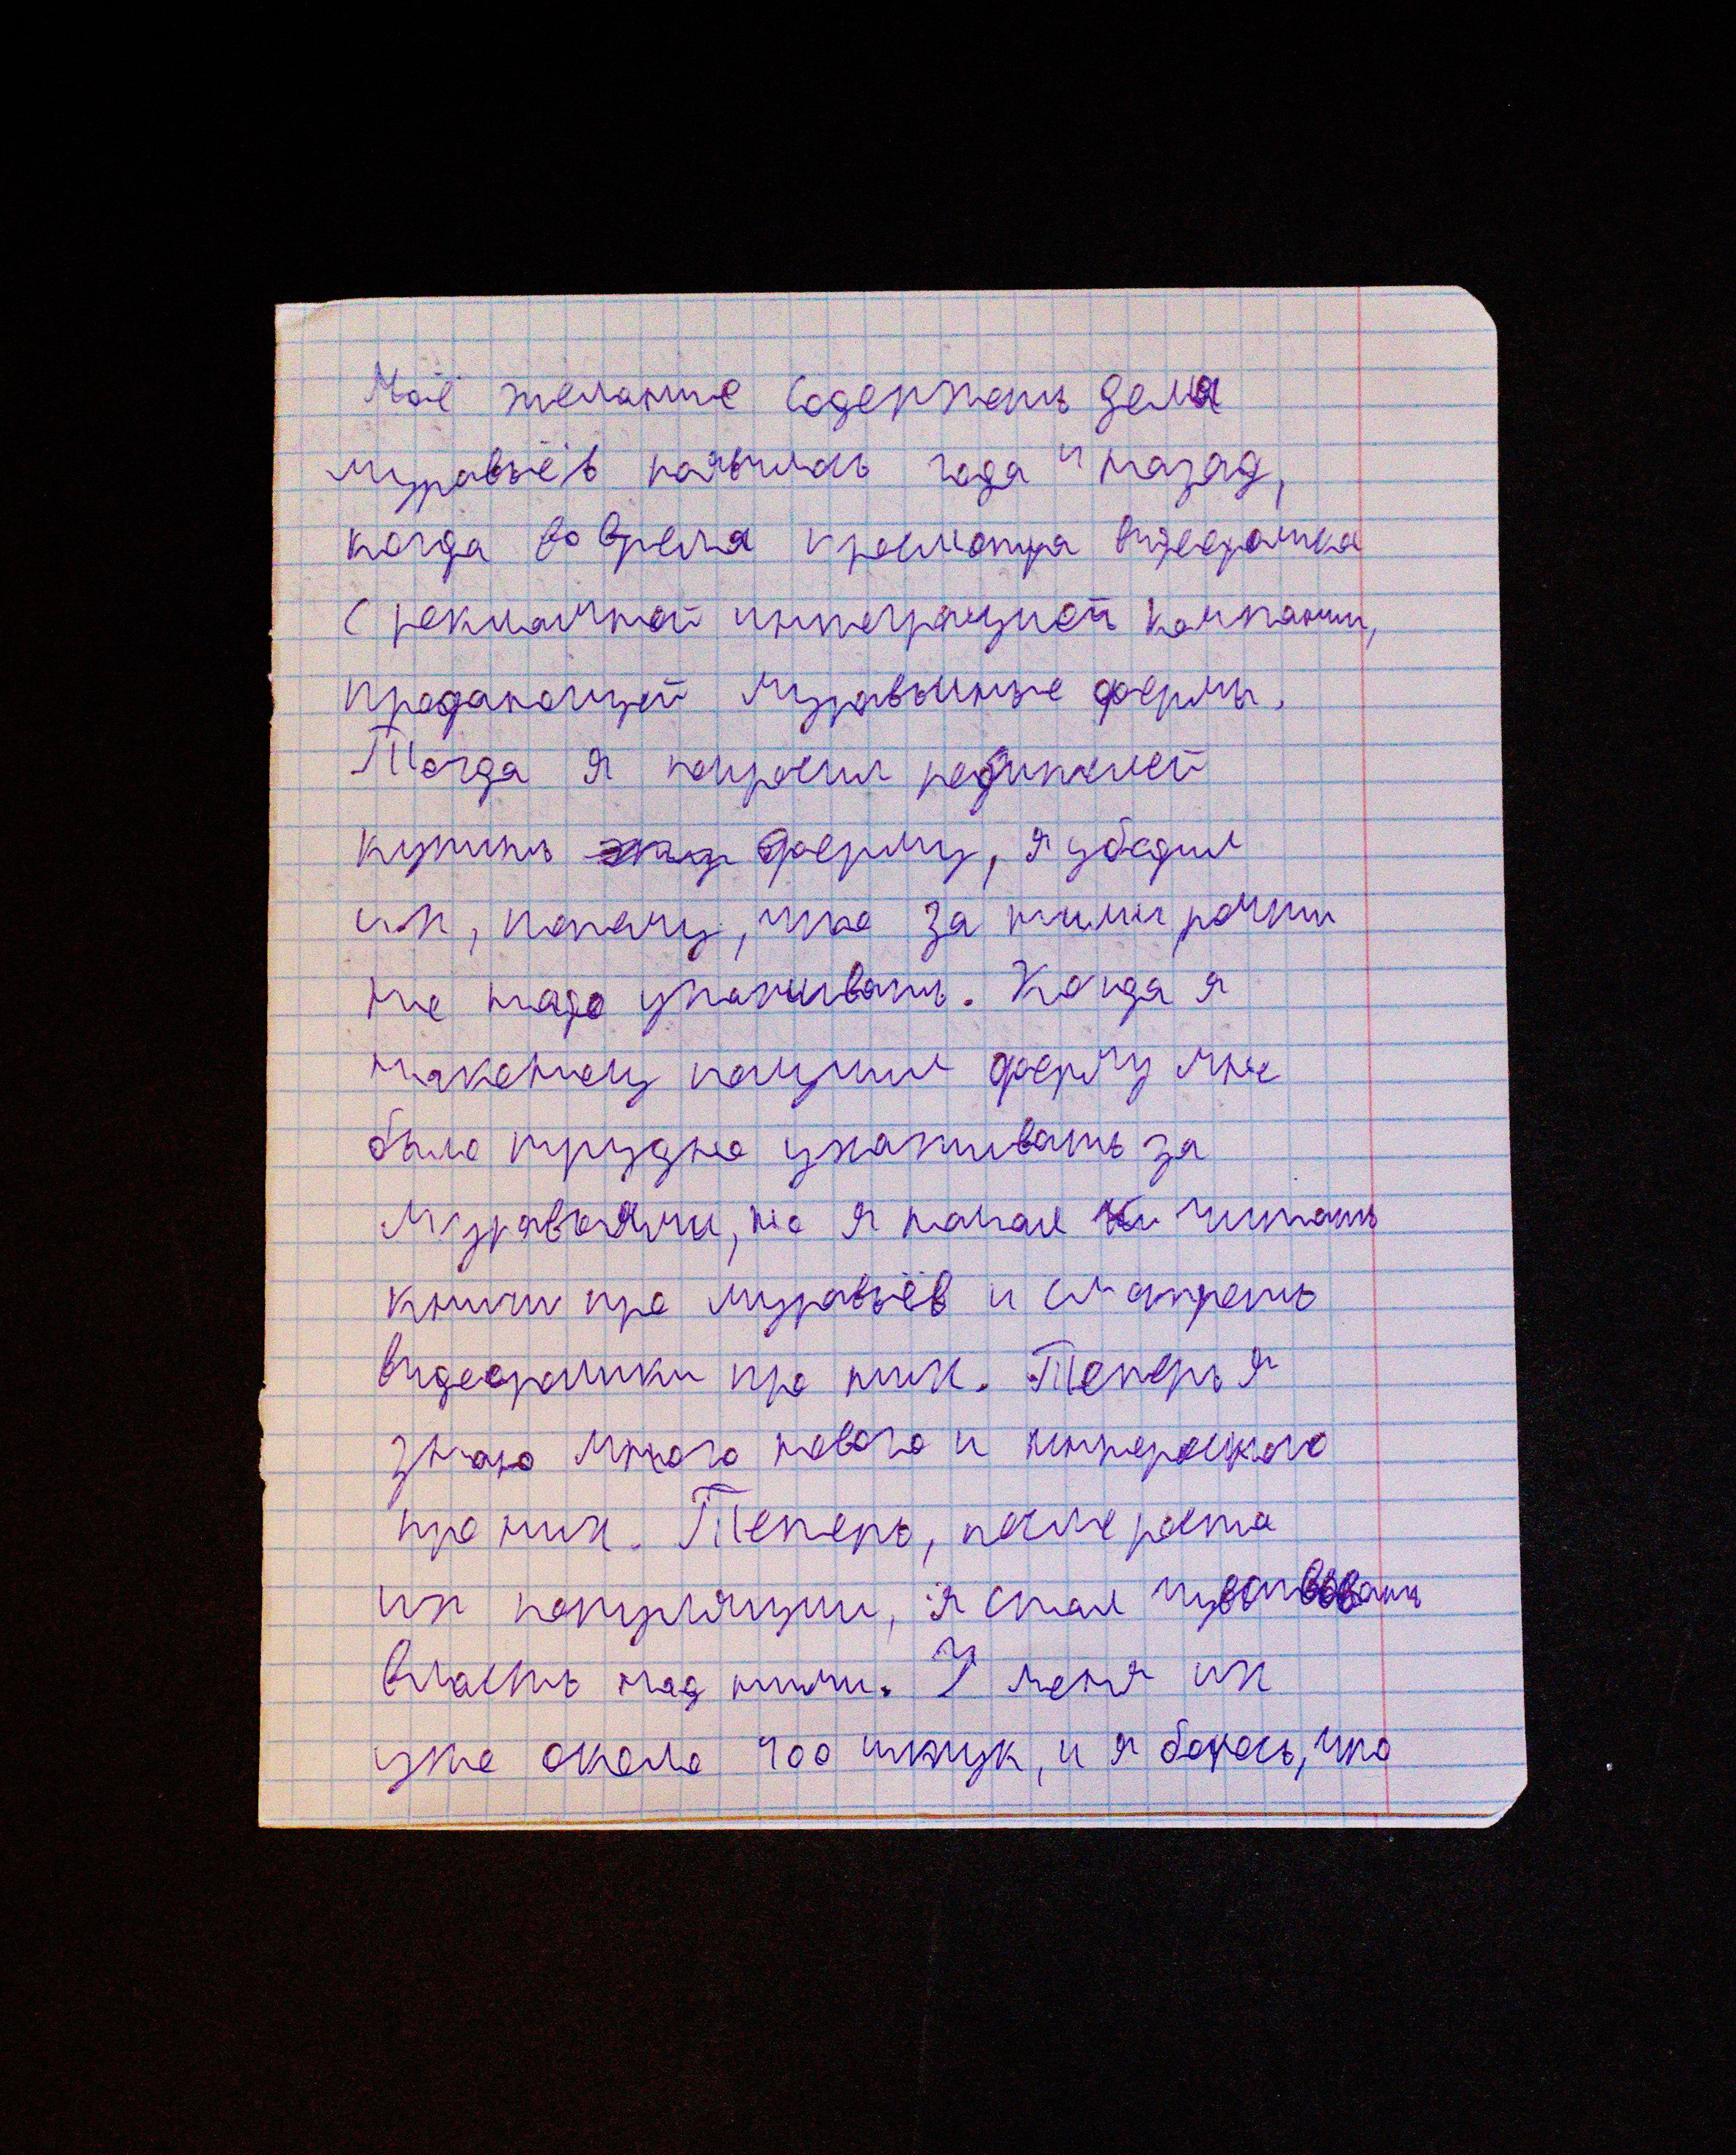 Моё желание содержать дома
муравьёв появилось года 4 назад,
когда во время просмотра видеоролика
с рекламной интеграцией компании,
продающей муравьиные фермы.
Тогда я попросил родителей
купить ферму, я убедил
их, потому, что за ними почти
не надо ухаживать. Когда я
наконец получил ферму мне
было трудно ухаживать за
муравьями, но я начал читать
книги про муравьёв и смотреть
видеоролики про них. Теперь я
знаю много нового и интересного
про них. Теперь, после роста
их популяции, я стал чувствовать
власть над ними. У меня их
уже около 400 штук, и я боюсь, что